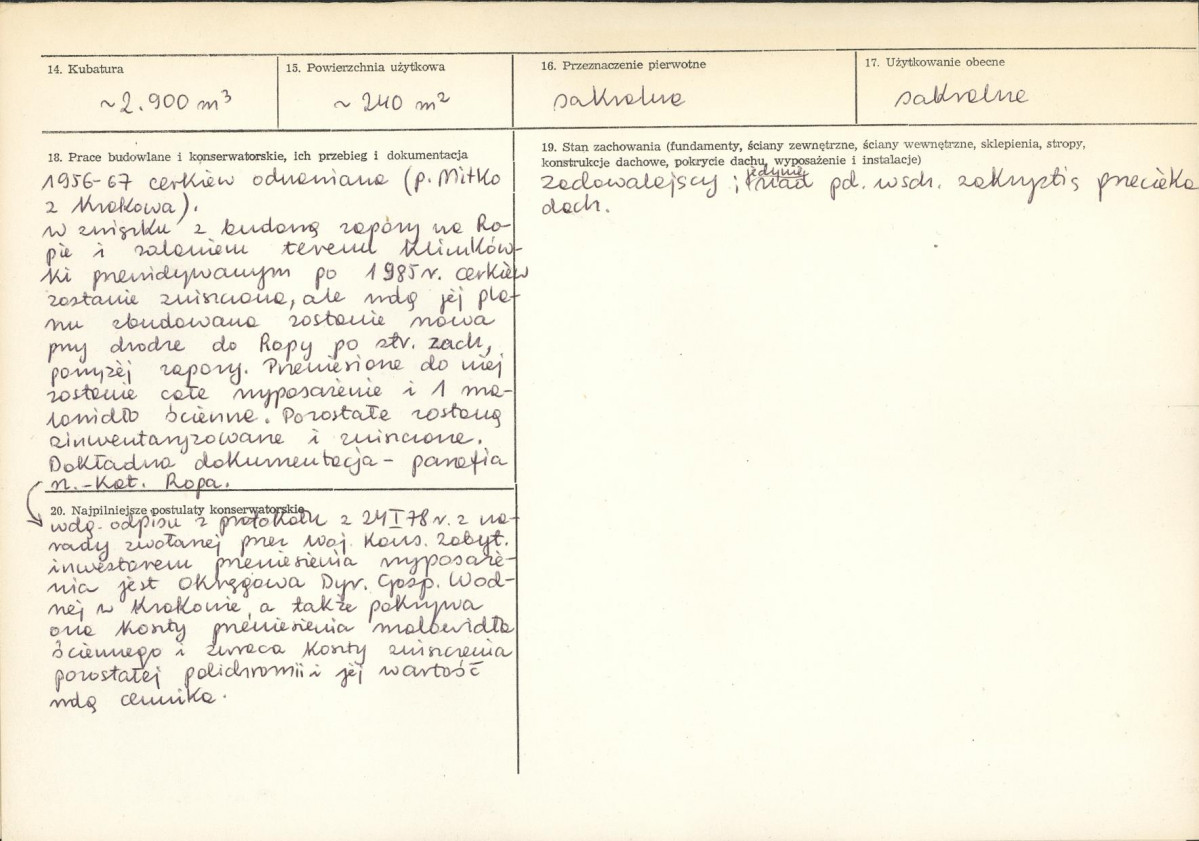 14. Kubatura
~ 2.900 m³
15. Powierzchnia użytkowa
~ 240 m²
16. Przeznaczenie pierwotne
sakralne
17. Użytkowanie obecne
sakralne
18. Prace budowlane i konserwatorskie, ich przebieg i dokumentacja
1956-67 cerkiew odnawiana (p. Mitko
z Krakowa).
W związku z budową zapory na Ro-
pie i zalaniem terenu Klimków-
ki przewidywanym po 1985 r. cerkiew
zostanie zniszczona, ale wdg jej pla-
nu zbudowana zostanie nowa
przy drodze do Ropy po str. zach,
powyżej zapory. Przeniesione do niej
zostanie całe wyposażenie i 1 ma-
lowidło ścienne. Pozostałe zostaną
zinwentaryzowane i zniszczone.
Dokładna dokumentacja - parafia
rz.-kat. Ropa.
19. Stan zachowania (fundamenty, ściany zewnętrzne, ściany wewnętrzne, sklepienia, stropy,
konstrukcje dachowe, pokrycie dachu, wyposażenie i instalacje)
zadowalający; jedynie nad pd. wsch. zakrystią przecieka
dach.
20. Najpilniejsze postulaty konserwatorskie
wdg. odpisu z protokołu z 24 I 78 r. z na-
rady zwołanej przez Woj. Kons. Zabyt.
inwestorem przeniesienia wyposaże-
nia jest Okręgowa Dyr. Gosp. Wod-
nej w Krakowie, a także pokrywa
ona koszty przeniesienia malowidła
ściennego i zwraca koszty zniszczenia
pozostałej polichromii i jej wartość
wdg cennika.